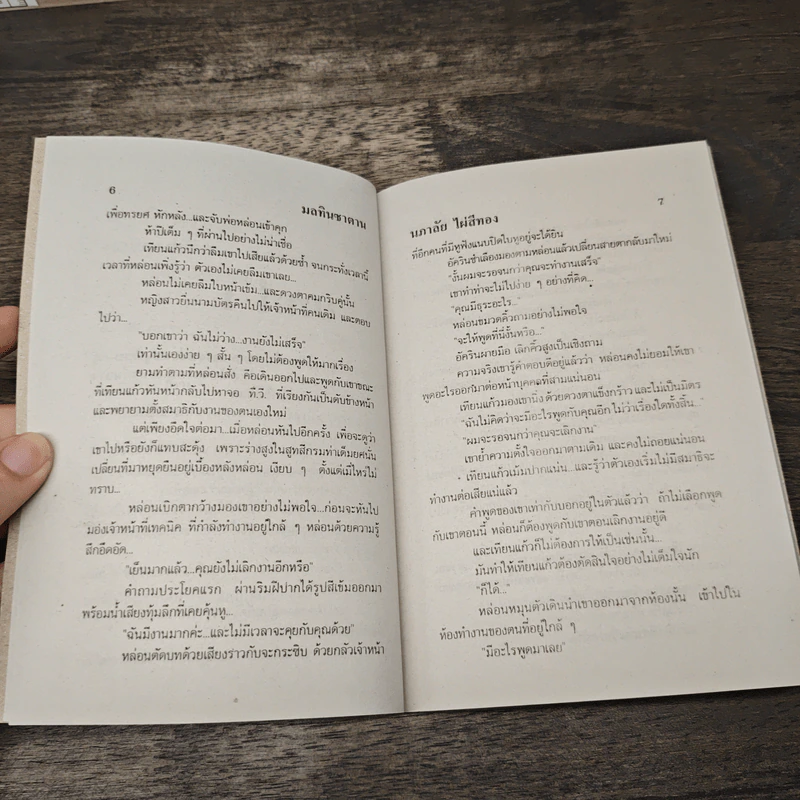 6
มลทินซาตาน
เพื่อทรยศ หักหลัง...และจับพ่อหล่อนเข้าคุก
ห้าปีเต็ม ๆ ที่ผ่านไปอย่างไม่น่าเชื่อ
เทียนแก้วนึกว่าลืมเขาไปเสียแล้วด้วยซ้ำ จนกระทั่งเวลานี้
เวลาที่หล่อนเพิ่งรู้ว่า ตัวเองไม่เคยลืมเขาเลย...
หล่อนไม่เคยลืมใบหน้าเข้ม...และดวงตาคมกริบคู่นั้น
หญิงสาวยื่นนามบัตรคืนไปให้เจ้าหน้าที่คนเดิม และตอบ
ไปว่า...
"บอกเขาว่า ฉันไม่ว่าง...งานยังไม่เสร็จ"
เท่านั้นเองง่าย ๆ สั้น ๆ โดยไม่ต้องพูดให้มากเรื่อง
ยามทำตามที่หล่อนสั่ง คือเดินออกไปและพูดกับเขาขณะ
ที่เทียนแก้วหันหน้ากลับไปหาจอ ที.วี. ที่เรียงกันเป็นตับข้างหน้า
และพยายามตั้งสมาธิกับงานของตนเองใหม่
แต่เพียงอึดใจต่อมา...เมื่อหล่อนหันไปอีกครั้ง เพื่อจะดูว่า
เขาไปหรือยังก็แทบสะดุ้ง เพราะร่างสูงในสูทสีกรมท่าเดิมยคนั้น
เปลี่ยนที่มาหยุดยืนอยู่เบื้องหลังหล่อน เงียบ ๆ ตั้งแต่เมื่อไหร่ไม่
ทราบ...
หล่อนเบิกตากว้างมองเขาอย่างไม่พอใจ...ก่อนจะหันไป
มองเจ้าหน้าที่เทคนิค ที่กำลังทำงานอยู่ใกล้ ๆ หล่อนด้วยความรู้
สึกอึดอัด...
"เย็นมากแล้ว...คุณยังไม่เลิกงานอีกหรือ"
คำถามประโยคแรก ผ่านริมฝีปากได้รูปสีเข้มออกมา
พร้อมน้ำเสียงทุ้มลึกที่เคยคุ้นหู...
"ฉันมีงานมากค่ะ...และไม่มีเวลาจะคุยกับคุณด้วย"
หล่อนตัดบทด้วยเสียงราวกับจะกระซิบ ด้วยกลัวเจ้าหน้า
7
นภาลัย ไผ่สีทอง
ที่อีกคนที่มีหูฟังแนบปิดใบหูอยู่จะได้ยิน
อัครินชำเลืองมองตามหล่อนแล้วเปลี่ยนสายตากลับมาใหม่
"งั้นผมจะรอจนกว่าคุณจะทำงานเสร็จ"
เขาทำท่าจะไม่ไปง่าย ๆ อย่างที่คิด...
"คุณมีธุระอะไร..."
หล่อนขมวดคิ้วถามอย่างไม่พอใจ
"จะให้พูดที่นี่งั้นหรือ..."
อัครินผายมือ เลิกคิ้วสูงเป็นเชิงถาม
ความจริงเขารู้คำตอบดีอยู่แล้วว่า หล่อนคงไม่ยอมให้เขา
พูดอะไรออกมาต่อหน้าบุคคลที่สามแน่นอน
เทียนแก้วมองเขานิ่ง ด้วยดวงตาแข็งกร้าว และไม่เป็นมิตร
"ฉันไม่คิดว่าจะมีอะไรพูดกับคุณอีก ไม่ว่าเรื่องใดทั้งสิ้น..."
"ผมจะรอจนกว่าคุณจะเลิกงาน"
เขาย้ำความตั้งใจออกมาตามเดิม และคงไม่ถอยแน่นอน
เทียนแก้วเม้มปากแน่น...และรู้ว่าตัวเองเริ่มไม่มีสมาธิจะ
ทำงานต่อเสียแน่แล้ว
คำพูดของเขาเท่ากับบอกอยู่ในตัวแล้วว่า ถ้าไม่เลือกพูด
กับเขาตอนนี้ หล่อนก็ต้องพูดกับเขาตอนเลิกงานอยู่ดี
และเทียนแก้วก็ไม่ต้องการให้เป็นเช่นนั้น...
มันทำให้เทียนแก้วต้องตัดสินใจอย่างไม่เต็มใจนัก
"ก็ได้..."
หล่อนหมุนตัวเดินนำเขาออกมาจากห้องนั้น เข้าไปใน
ห้องทำงานของตนที่อยู่ใกล้ ๆ
"มีอะไรพูดมาเลย"